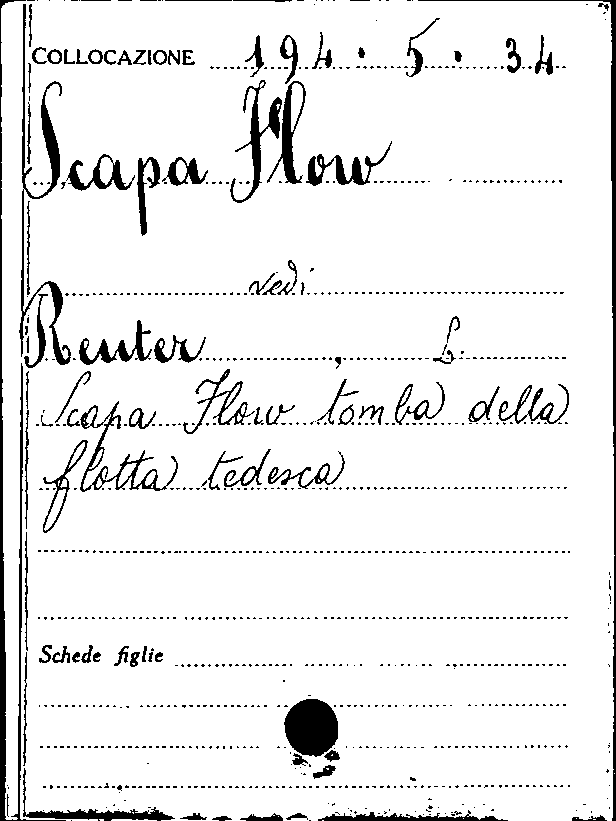 COLLOCAZIONE 194 · 5 · 34
Scapa Flow
vedi
Reuter, L.
Scapa Flow tomba della
flotta tedesca
Schede figlie